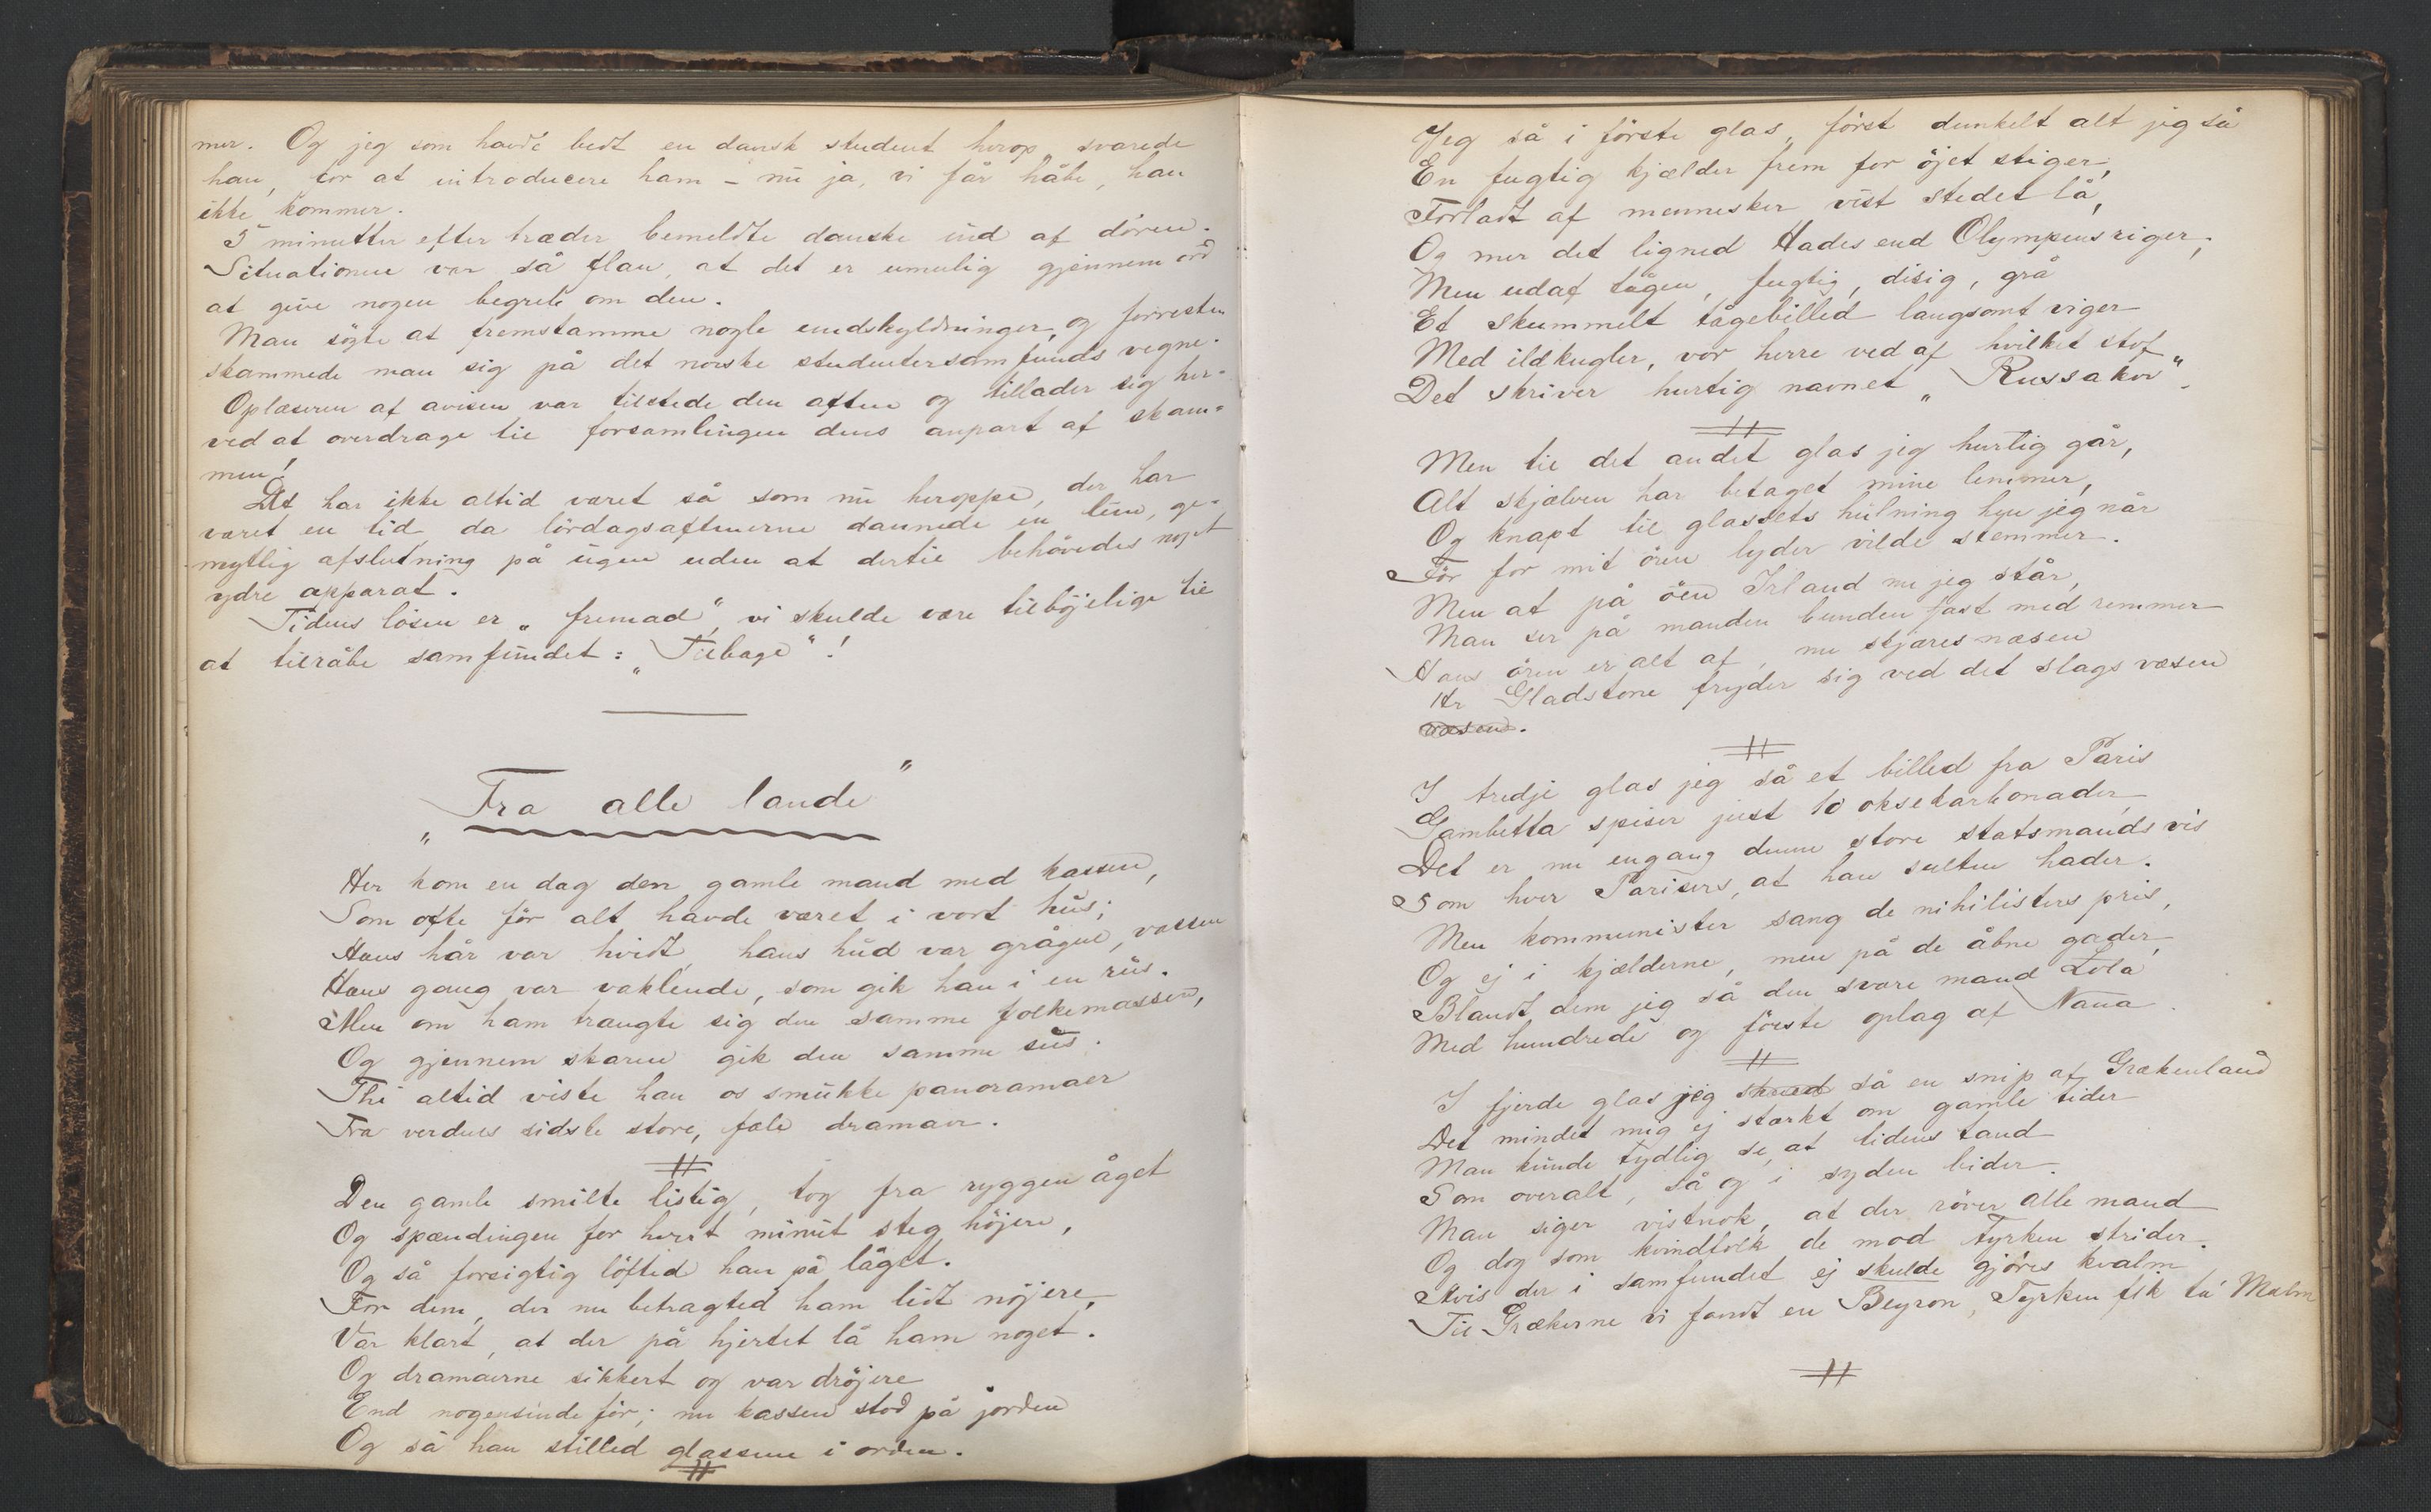 mer. Og jeg som havde bedt en dansk student herop, svarede
han, for at introducere ham – nu ja, vi får håbe, han
ikke kommer.
5 minutter efter træder bemeldte danske ind af dören.
Situationen var så flau, at det er umulig gjennem ord
at give nogen begreb om den.
Man sögte at fremstamme nogle undskyldninger, og forresten
skammede man sig på det norske studentersamfunds vegne.
Oplæseren af avisen var tilstede den aften og tillader sig her-
ved at overdrage til forsamlingen dens anpart af skam-
men!
Det har ikke altid været så som nu heroppe, der har
været en tid, da lördagsaftnerne dannede en lun, ge-
mytlig afslutning på ugen uden at dertil behövedes noget
ydre apparat.
Tidens lösen er „fremad“, vi skulde være tilböjelige til
at tilråbe samfundet: „Tilbage“!
„Fra alle lande“
Her kom en dag den gamle mand med kassen,
Som ofte för alt havde været i vort hus;
Hans hår var hvidt, hans hud var grågul, vassen
Hans gang var vaklende, som gik han i en rus.
Men om ham trængte sig den samme folkemassen,
Og gjennem skaren gik den samme sus.
Thi altid viste han os smukke panoramaer
Fra verdens sidste store, fæle dramaer.
Den gamle smilte listig, tog fra ryggen åget
Og spændingen for hvert minut steg höjere,
Og så forsigtig löfted han på låget.
For dem, der nu betragted ham lidt nöjere,
Var klart, at der på hjertet lå ham noget.
Og dramaerne sikkert og var dröjere
End nogensinde för; nu kassen stod på jorden
Og så han stilled glassene i orden.
Jeg så i förste glas, först dunkelt alt jeg så
En fugtig kjælder frem for öjet stiger,
Forladt af mennesker vist stedet lå,
Og mer det ligned Hades end Olympens riger;
Men udaf tågen, fugtig, disig, grå
Et skummelt tågebilled langsomt viger
Med ildkugler, vor herre ved af hvilket stof
Det skriver hurtig navnet „Russakov“.
Men til det andet glas jeg hurtig går,
Alt skjælven har betaget mine lemmer,
Og knapt til glassets hulning hen jeg når
För for mit ören lyder vilde stemmer.
Men at på öen Irland nu jeg står,
Man ser på manden bunden fast med remmer
Hans ören er alt af, nu skjæres næsen
Hr Gladstone fryder sig ved det slags væsen
væsen.
I tredje glas jeg så et billed fra Paris
Gambetta spiser just 10 oksekarbonader,
Det er nu engang denne store statsmands vis
Som hver Parisers, at han sulten hader.
Men kommunister sang de nihilisters pris,
Og ej i kjælderne, men på de åbne gader,
Blandt dem jeg så den svære mand Zola
Med hundrede og förste oplag af Nana.
I fjerde glas jeg så en snip af Grækenland
Det mindet mig ej stærkt om gamle tider
Man kunde tydlig se, at tidens tand
Som overalt, så og i syden bider.
Man siger vistnok, at der röver alle mand
Og dog som kvindfolk de mod Tyrken strider.
Hvis der i samfundet ej skulde gjöres kvalm
Til Grækerne vi fandt en Beyron, Tyrken fik ta' Malm